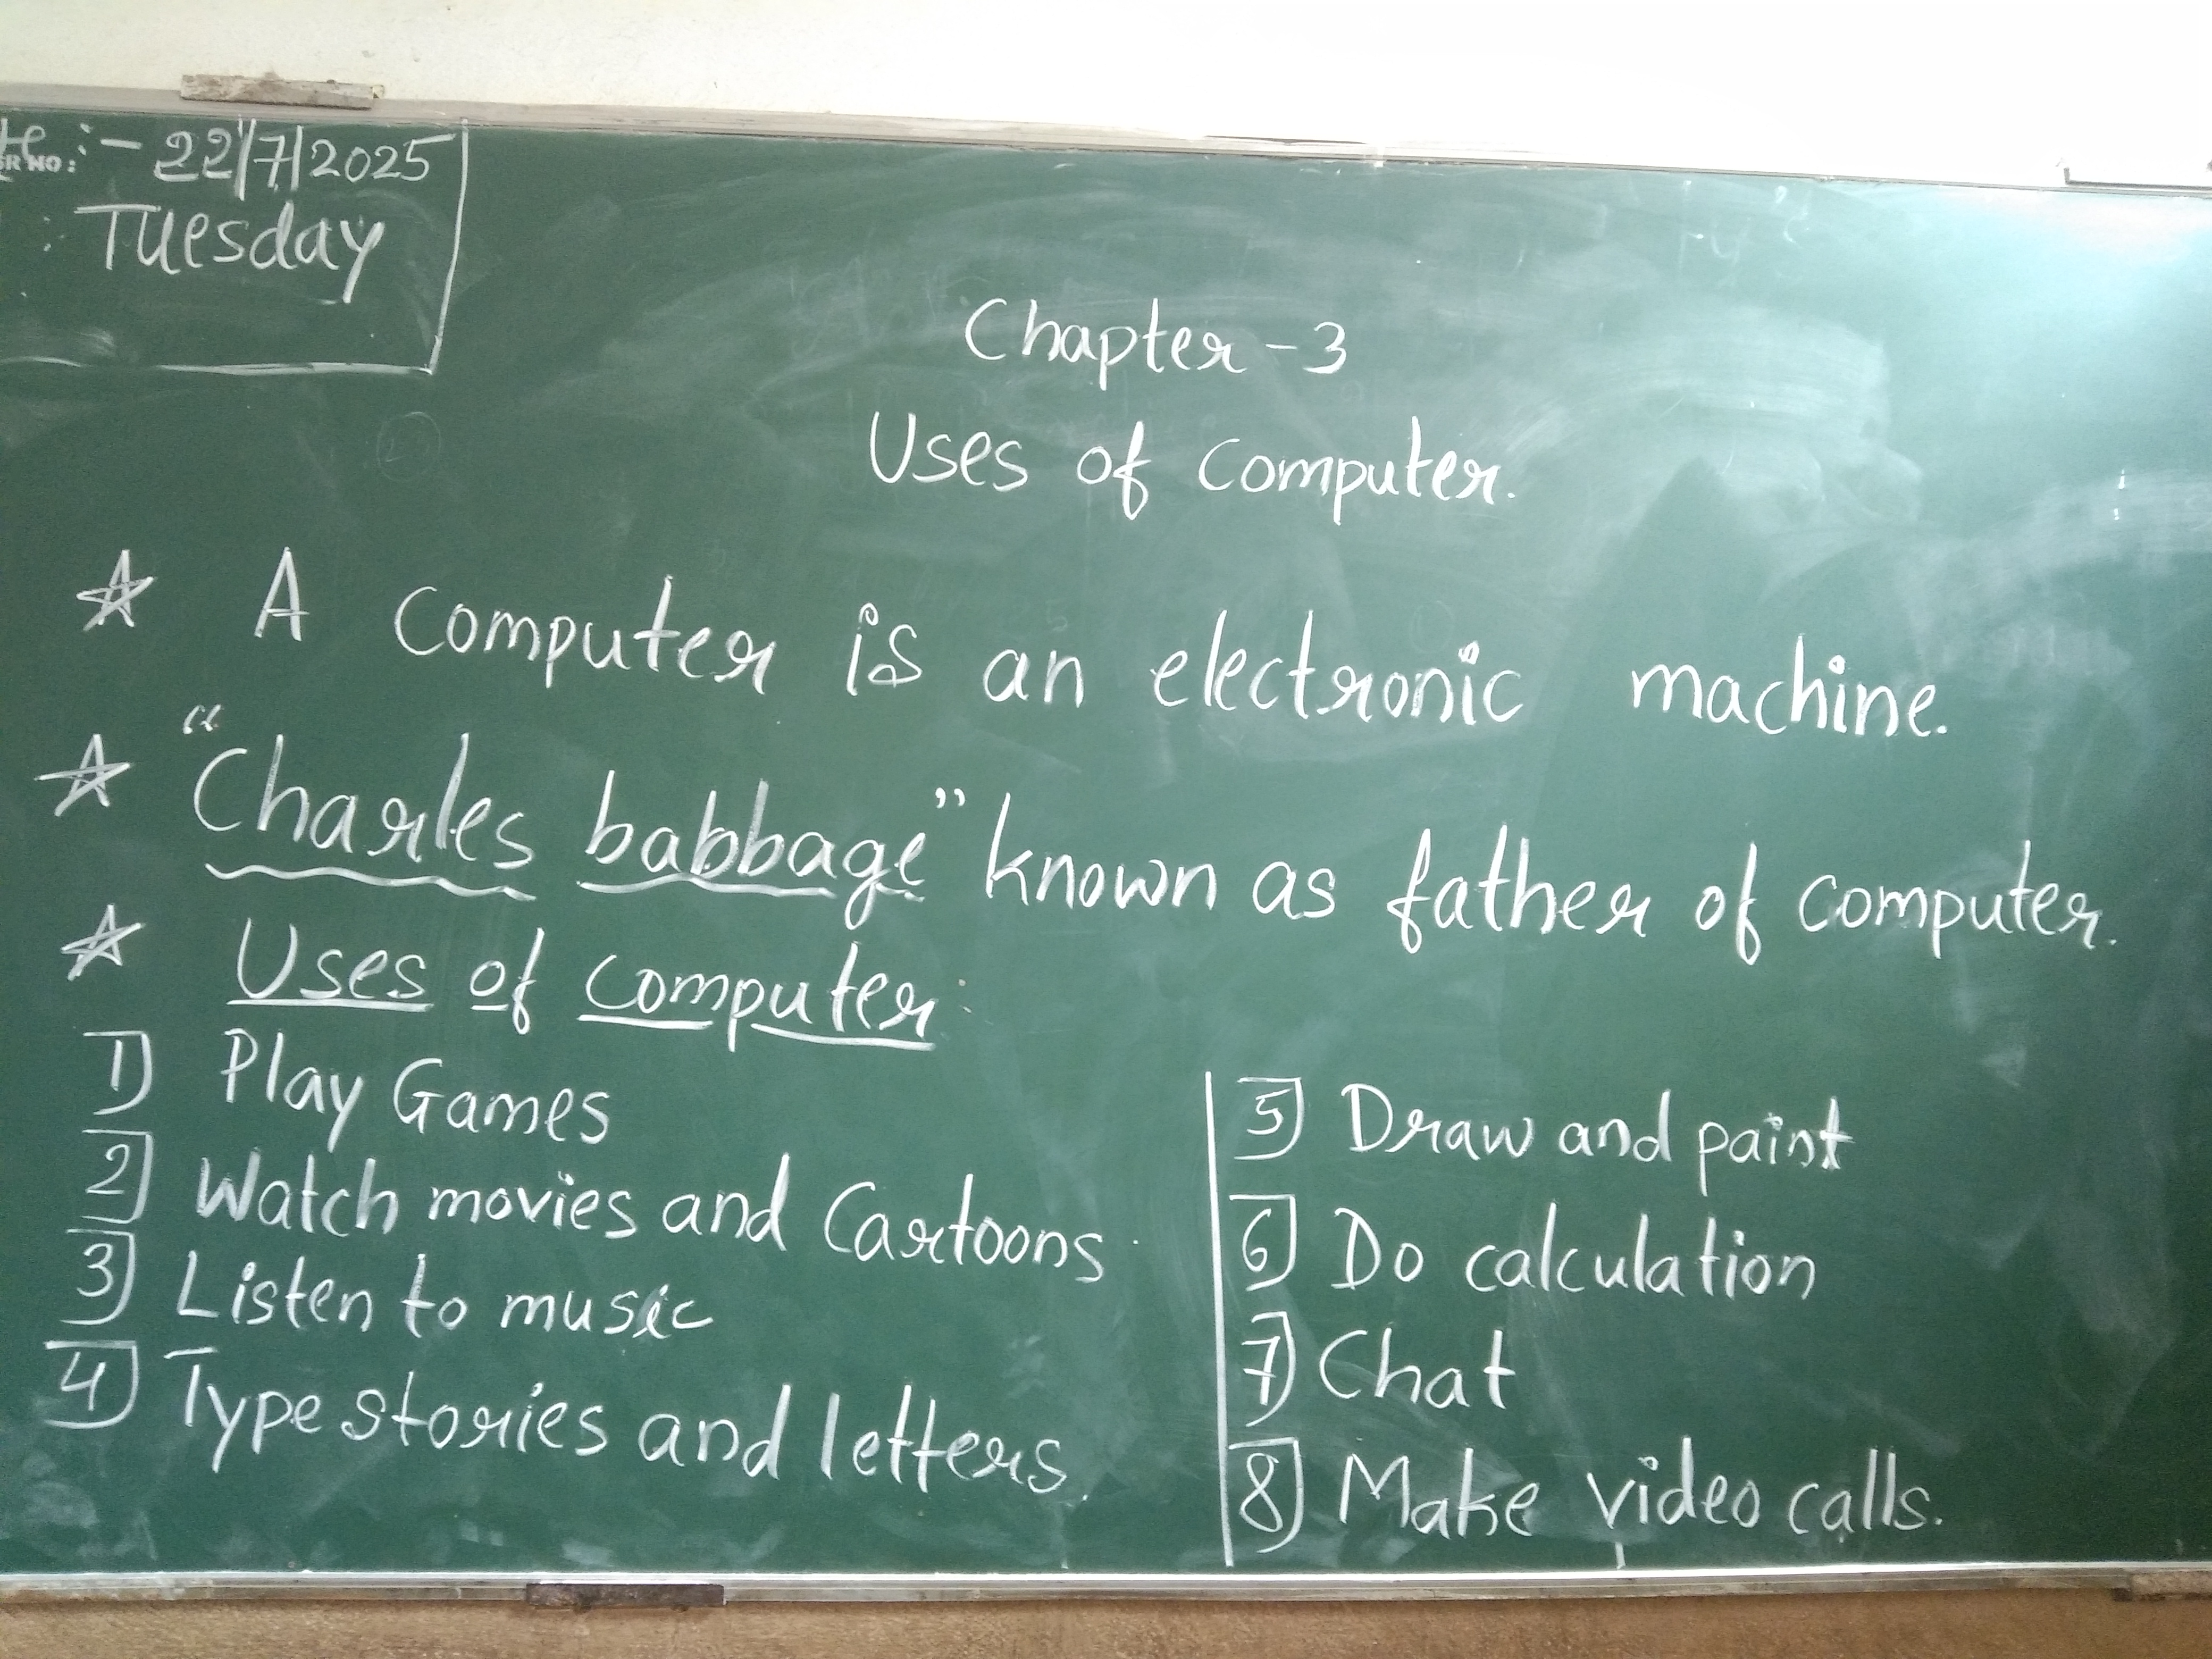 :- 22/7/2025
SR NO:
: Tuesday
Chapter - 3
Uses of Computer.
☆ A Computer is an electronic machine.
☆ "Charles babbage" known as father of computer.
☆ Uses of computer
1) Play Games
2) Watch movies and Cartoons
3) Listen to music
4) Type stories and letters.
5) Draw and paint
6) Do calculation
7) Chat
8) Make video calls.